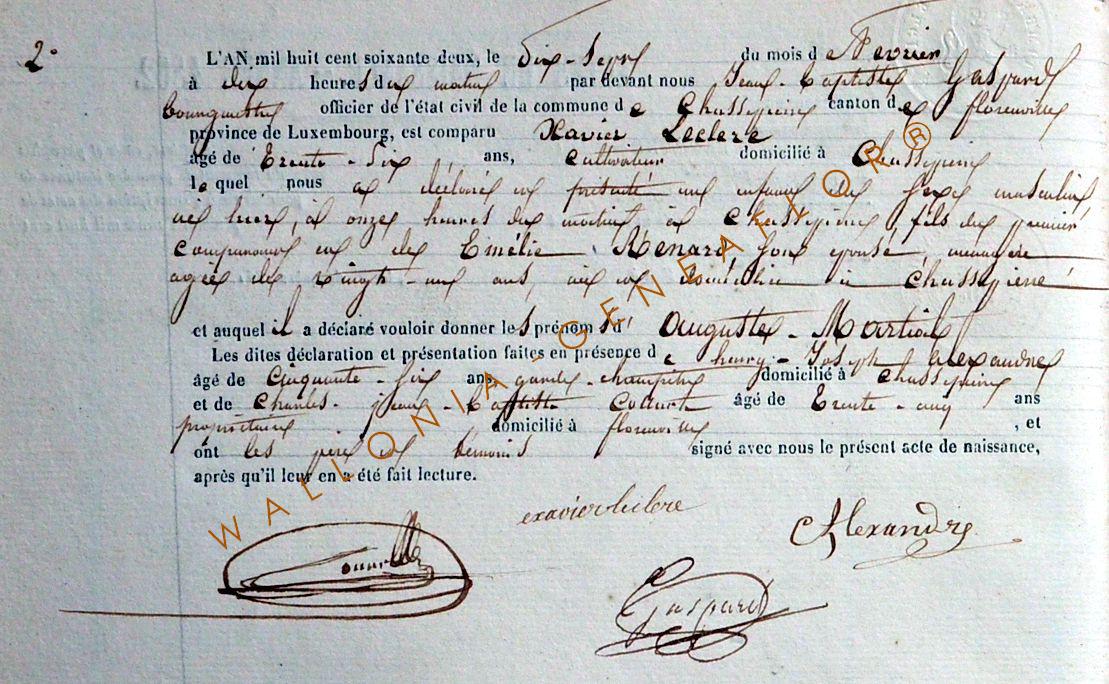 2°
L'AN mil huit cent soixante deux, le Dix-Sept du mois de Fevrier
à dix heures du matin par devant nous Jean-Baptiste Gaspard
bourgmestre officier de l'état civil de la commune de Chassepierre canton de florenville
province de Luxembourg, est comparu Xavier Leclere
âgé de Trente-Six ans, cultivateur domicilié à Chassepierre
lequel nous a déclaré et présenté un enfant du sexe masculin
né hier, à onze heures du matin à Chassepierre, fils du premier
comparant et de Emélie Renard son épouse, menagère
agée de vingt-un ans, née et domiciliée à Chassepierre
et auquel il a déclaré vouloir donner les prénoms d' Auguste-Martial
Les dites déclaration et présentation faites en présence de henry-Joseph Alexandre
âgé de Cinquante-Six ans garde-champêtre domicilié à Chassepierre
et de Charles-jean-Baptiste âgé de Trente-cinq ans
propriétaire domicilié à florenville , et
ont les père et témoins signé avec nous le présent acte de naissance,
après qu'il leur en a été fait lecture.
exavier leclere
Alexandre
Gaspard
WALLONIA-GENEAFLOR®